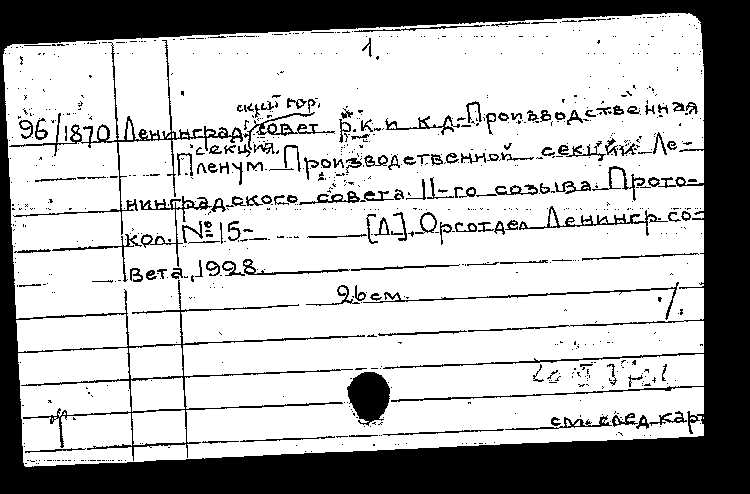 1.
ский гор.
96/1870 Ленинград. совет р.к и к.д. Производственная
секция.
Пленум Производственной секции Ле-
нинградского совета. II-го созыва. Прото-
кол. №15- [Л]. Орготдел Ленингр со-
вета, 1928.
26 см.
./.
см. след. карт